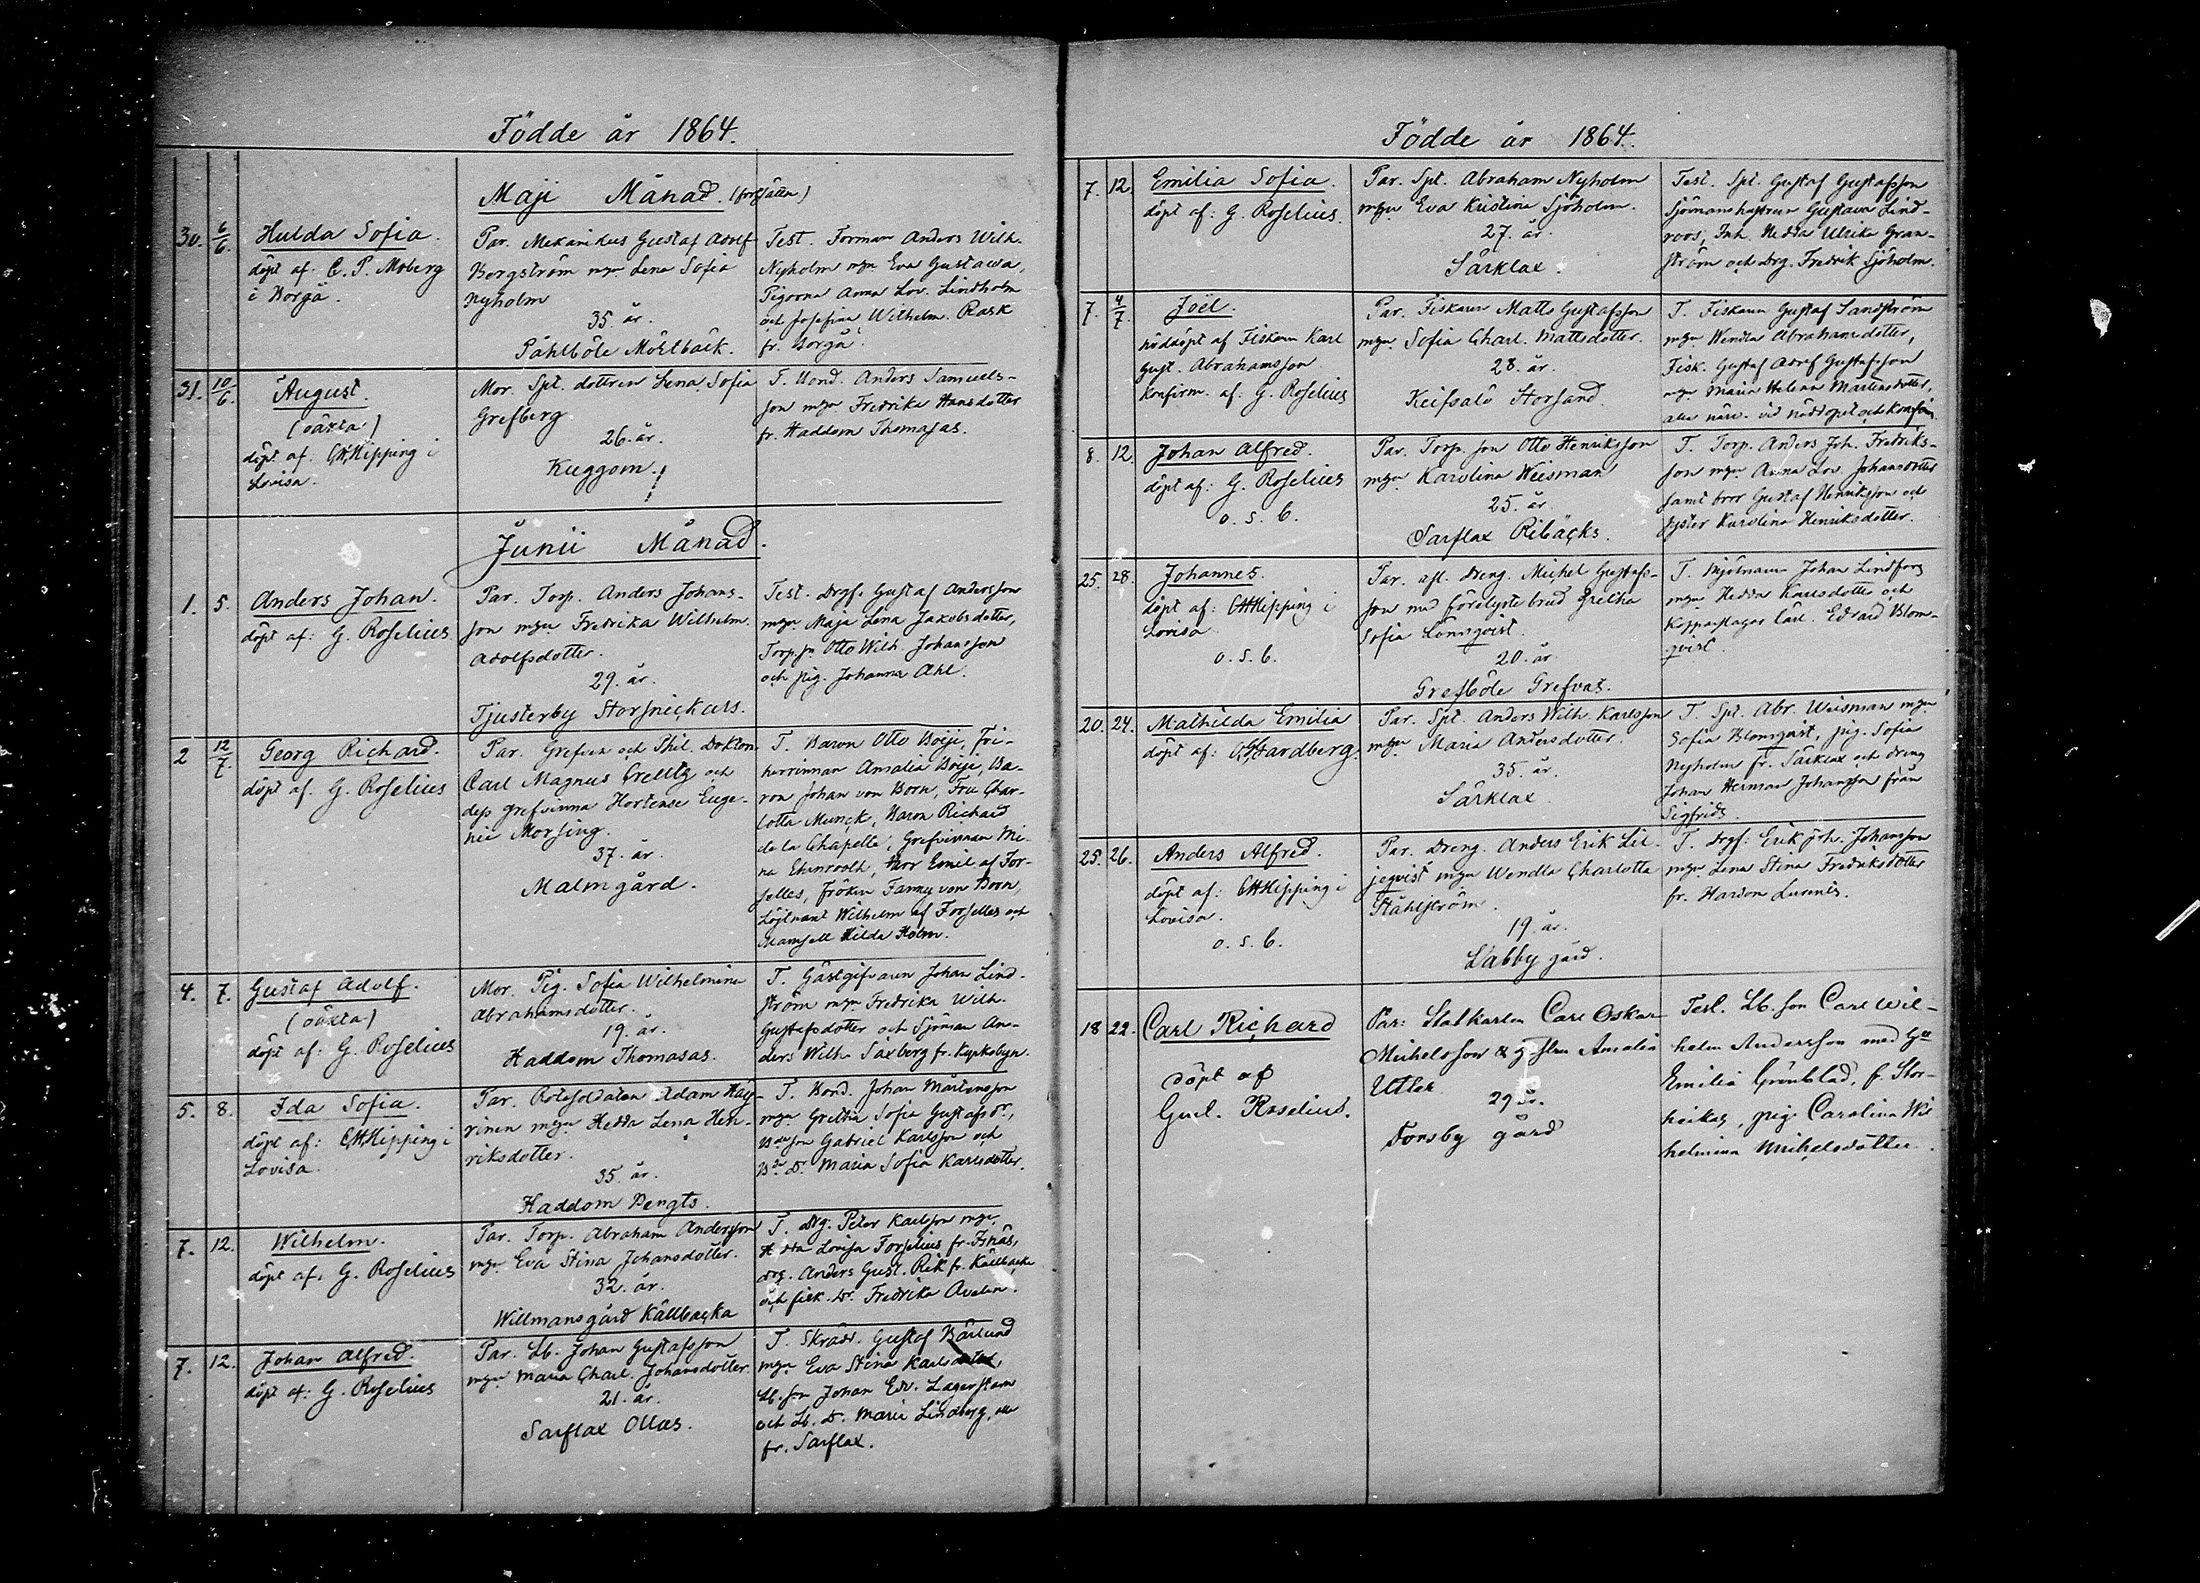 Födde år 1864.
Maji Månad. (fortsätten)
30. 6/6. Hulda Sofia.
döpt af: C. P. Moberg
i Borgå.
Par. Mekanikus Gustaf Adolf
Borgström mgn Lena Sofia
Nyholm
35. år.
Påhlböle Möhlback.
Test. Forman Anders Wilh.
Nyholm mgn Eva Gustava,
Pigorna Anna Lov. Lindholm
och Josefina Wilhelm. Rask
fr. Borgå.
31. 10/6. August.
(oäkta)
döpt af. CHKipping i
Lovisa.
Mor. Spt. dottren Lena Sofia
Grefberg
26. år.
Kuggom.
T. Bond. Anders Samuels-
son mgn Fredrika Hansdotter
fr. Haddom Thomasas.
Junii Månad.
1. 5. Anders Johan.
döpt af: G. Roselius
Par. Torp. Anders Johans-
son mgn Fredrika Wilhelm.
Adolfsdotter.
29. år.
Tjusterby Storsnickars.
Test. Drgs. Gustaf Andersson
mgn Maja Lena Jakobsdotter,
Torp.sn Otto Wilh. Johansson
och pig. Johanna Ahl.
2 12/7. Georg Richard.
döpt af. G. Roselius
Par. Grefven och Phil. Doktorn
Carl Magnus Creutz och
dess grefvinna Hortense Euge-
nie Morsing.
37. år.
Malmgård.
T. Baron Otto Boije, Fri-
herrinnan Amalia Boije, Ba-
ron Johan von Born, Fru Char-
lotta Munck, Baron Richard
de la Chapelle, Grefvinnan Mi-
na Ehrnrooth, Herr Emil af For-
selles, Fröken Fanny von Born,
Löjtnant Wilhelm af Forselles och
Mamsell Hilda Holm.
4. 7. Gustaf Adolf.
(oäkta)
döpt af: G. Roselius
Mor. Pig. Sofia Wilhelmina
Abrahamsdotter.
19. år.
Haddom Thomasas.
T. Gästgifvaren Johan Lind-
ström mgn Fredrika Wilh.
Gustafsdotter och Sjöman An-
ders Wilh. Saxberg fr. Kyrkobyn.
5. 8. Ida Sofia.
döpt af: CHKipping i
Lovisa.
Par. Rotesoldaten Adam Hay-
rinen mgn Hedda Lena Hen-
riksdotter.
35. år.
Haddom Bengts.
T. Bond. Johan Mårtensson
mgn Gretha Sofia Gustafsdr.,
Bdeson Gabriel Karlsson och
Bde. dr. Maria Sofia Karlsdotter.
7. 12. Wilhelm.
döpt af. G. Roselius
Par. Torp. Abraham Andersson
mgn Eva Stina Johansdotter.
32. år.
Willmansgård Källbacka
T. Drg. Peter Karlsson mgn
Hedda Lovisa Forselius fr. Isnäs,
drg. Anders Gust. Rik fr. Källbacka
och fisk. dr. Fredrika Avelan.
7. 12. Johan Alfred.
döpt af: G. Roselius
Par. Lb. Johan Gustafsson
mgn Maria Charl. Johansdotter.
21. år.
Sarflax Ollas.
T. Skrädd. Gustaf Bärlund
mgn Eva Stina Karlsdotter,
Lb. son Johan Edv. Lagerstam
och Lb. dr. Maria Lindberg, alla
fr. Sarflax.
Födde år 1864.
7. 12. Emilia Sofia.
döpt af: G. Roselius.
Par. Spt. Abraham Nyholm
mgn Eva Kristina Sjöholm.
27. år.
Särklax.
Test. Spt. Gustaf Gustafsson
Sjömanshustrun Gustava Lind-
roos, Inh. Hedda Ulrika Gran-
ström och Drg. Fredrik Sjöholm.
7. 4/7. Joël.
nöddöpt af Fiskaren Karl
Gust. Abrahamsson
konfirm. af: G. Roselius
Par. Fiskaren Matts Gustafsson
mgn Sofia Charl. Mattsdotter.
28. år.
Keifsalö Storsand.
T. Fiskaren Gustaf Sandström
mgn Wendla Abrahamsdotter,
Fisk. Gustaf Adolf Gustafsson
mgn Maria Helena Mårtensdotter,
alla närv. vid nöddopet och konfirm.
8. 12. Johan Alfred.
döpt af: G. Roselius
o. s. b.
Par. Torp. son Otto Henriksson
mgn Karolina Weisman
25. år
Sarflax Ribäcks.
T. Torp. Anders Joh. Fredriks-
son mgn Anna Lov. Johansdotter
samt bror Gustaf Henriksson och
syster Karolina Henriksdotter.
25. 28. Johannes.
döpt af: CHKipping i
Lovisa
o. s. b.
Par. afl. Dreng. Michel Gustafs-
son med förelyste brud Gretha
Sofia Lönnqvist.
20. år
Grefböle Grefvas.
T. Mjölnaren Johan Lindfors
mgn Hedda Karlsdotter och
Kopparslagar lärl. Edvard Blom-
qvist.
20. 24. Mathilda Emilia
döpt af: Hardberg.
Par. Spt. Anders Wilh. Karlsson
mgn Maria Andersdotter.
35. år.
Särklax.
T. Spt. Abr. Weisman mgn
Sofia Blomqvist, pig. Sofia
Nyholm fr. Särklax och dreng
Johan Herman Johansson från
Sigfrids.
25. 26. Anders Alfred.
döpt af: CHKipping i
Lovisa.
o. s. b.
Par. Dreng. Anders Erik Lil-
jeqvist mgn Wendla Charlotta
Ståhlström.
19. år.
Labby gård.
T. Drgs: Erik Joh. Johansson
mgn Lena Stina Fredriksdotter
fr. Hardom Lurens.
18 22. Carl Richard
döpt af
Gust. Roselius.
Par: Statkarlen Carl Oskar
Michelsson & hustru Amalia
Utter
29 år.
Forsby gård
Test. Lb. son Carl Wil-
helm Andersson med
Emilia Grönblad, f. Stor-
heikas, pig. Carolina Wil
helmina Michelsdotter.